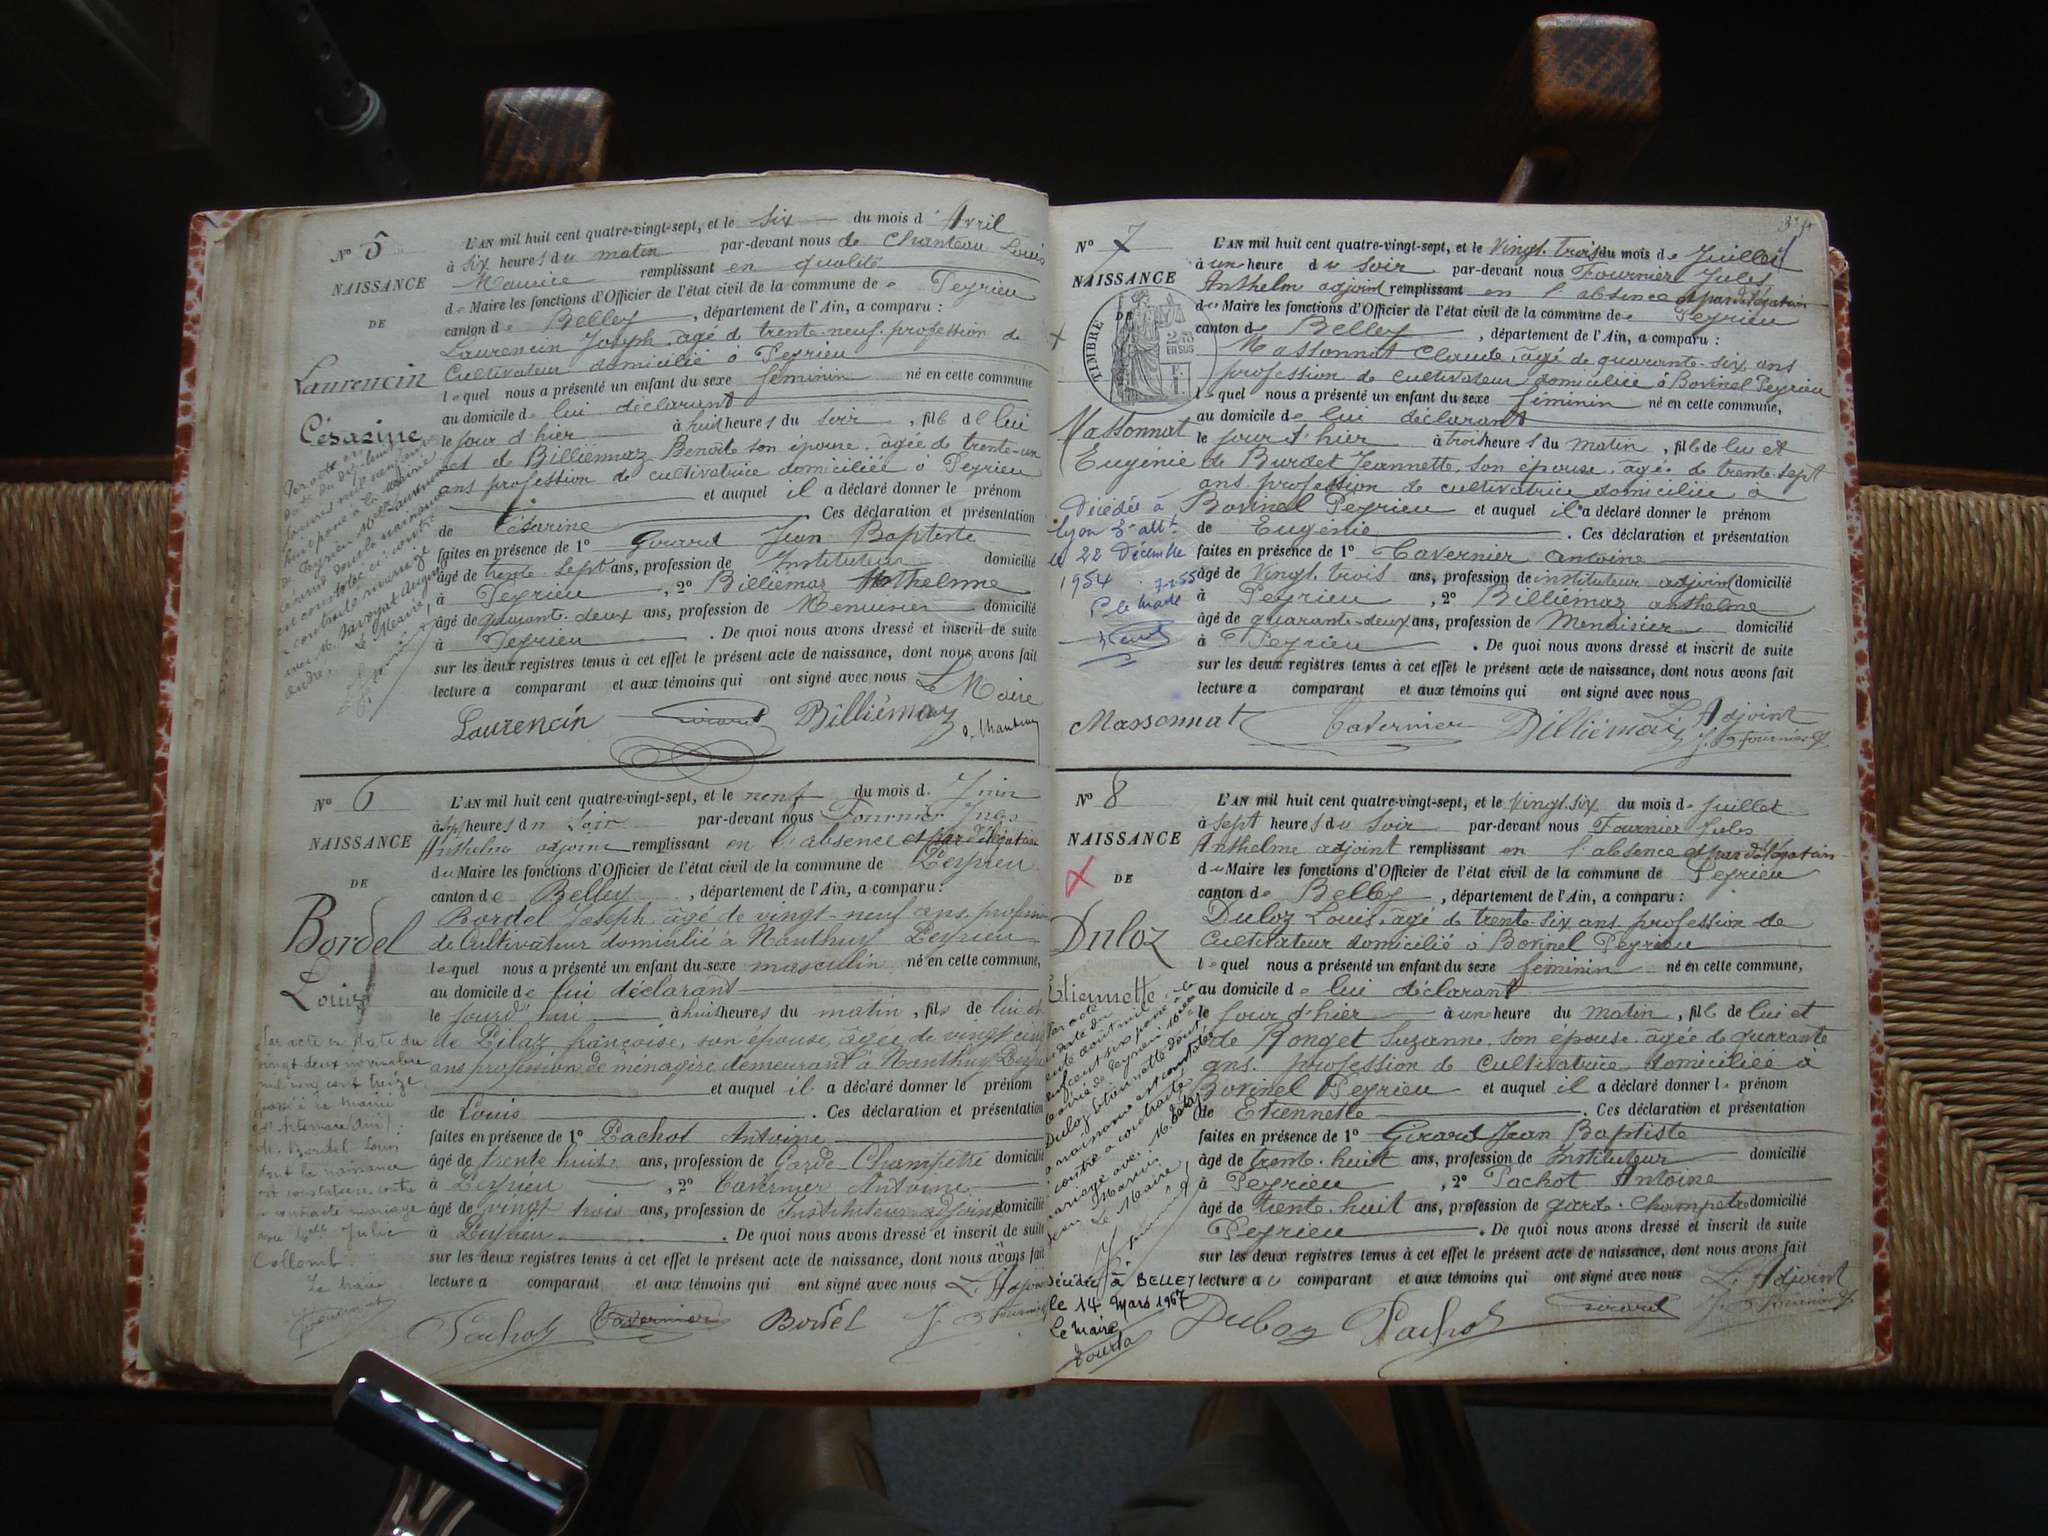 N° 5
NAISSANCE
DE
Laurencin
Césarine
L'AN mil huit cent quatre-vingt-sept, et le six du mois d'Avril
à six heures du matin par-devant nous de Chanteau Louis
Maurice remplissant en qualité
de Maire les fonctions d'Officier de l'état civil de la commune de Peyrieu
canton de Belley, département de l'Ain, a comparu :
Laurencin Joseph, âgé d trente-neuf profession de
cultivateur domicilié à Peyrieu
lequel nous a présenté un enfant du sexe féminin né en cette commune
au domicile de lui déclarant
le jour d'hier à huit heures du soir, fille de lui
et de Billiémaz Benoîte son épouse, âgée de trente-un
ans profession de cultivatrice domiciliée à Peyrieu
et auquel il a déclaré donner le prénom
de Césarine. Ces déclaration et présentation
faites en présence de 1° Girard Jean Baptiste
âgé de trente-sept ans, profession de Instituteur domicilié
à Peyrieu, 2° Billiémaz Anthelme
âgé de quarante-deux ans, profession de Menuisier domicilié
à Peyrieu. De quoi nous avons dressé et inscrit de suite
sur les deux registres tenus à cet effet le présent acte de naissance, dont nous avons fait
lecture a comparant et aux témoins qui ont signé avec nous Le Maire
Laurencin Girard Billiémaz
N° 6
NAISSANCE
DE
Bordel
Louis
L'AN mil huit cent quatre-vingt-sept, et le neuf du mois d. Juin
à sept heures du soir par-devant nous Fournier Jules
Anthelme adjoint remplissant en l'absence et par délégation
du Maire les fonctions d'Officier de l'état civil de la commune de Peyrieu
canton de Belley, département de l'Ain, a comparu :
Bordel Joseph âgé de vingt-neuf ans profession
de cultivateur domicilié à Nanthuy Peyrieu
lequel nous a présenté un enfant du sexe masculin né en cette commune,
au domicile de lui déclarant
le jourd'hui à huit heures du matin, fils de lui et
de Pilaz françoise, son épouse, âgée de vingt cinq
ans profession de ménagère demeurant à Nanthuy Peyrieu
et auquel il a déclaré donner le prénom
de Louis. Ces déclaration et présentation
faites en présence de 1° Pachot Antoine
âgé de trente huit ans, profession de Garde-Champetre domicilié
à Peyrieu, 2° Tavernier Antoine
âgé de vingt trois ans, profession de Instituteur adjoint domicilié
à Peyrieu. De quoi nous avons dressé et inscrit de suite
sur les deux registres tenus à cet effet le présent acte de naissance, dont nous avons fait
lecture a comparant et aux témoins qui ont signé avec nous L'Adjoint
Pachot Tavernier Bordel J. Fournier
Par acte en date du
vingt deux novembre
mil neuf cent treize
passé à la mairie
(Ain).
M. Bordel Louis
dont la naissance
est constatée contre
a contracté mariage
avec Melle Julie
Collomb.
Le Maire
N° 7
NAISSANCE
DE
TIMBRE
2/10 EN SUS
Massonnat
Eugénie
L'AN mil huit cent quatre-vingt-sept, et le Vingt-trois du mois de Juillet
à une heure du soir par-devant nous Fournier Jules
Anthelme adjoint remplissant en l'absence et par délégation
du Maire les fonctions d'Officier de l'état civil de la commune de Peyrieu
canton de Belley, département de l'Ain, a comparu :
Massonnat Claude, âgé de quarante-six ans
profession de cultivateur domicilié à Bovinel Peyrieu
lequel nous a présenté un enfant du sexe féminin né en cette commune,
au domicile de lui déclarant
le jour d'hier à trois heures du matin, fille de lui et
de Burdet Jeannette, son épouse, âgée de trente-sept
ans profession de cultivatrice domiciliée à
Bovinel Peyrieu et auquel il a déclaré donner le prénom
de Eugénie. Ces déclaration et présentation
faites en présence de 1° Tavernier antoine
âgé de Vingt-trois ans, profession de instituteur adjoint domicilié
à Peyrieu, 2° Billiémaz anthelme
âgé de quarante-deux ans, profession de Menuisier domicilié
à Peyrieu. De quoi nous avons dressé et inscrit de suite
sur les deux registres tenus à cet effet le présent acte de naissance, dont nous avons fait
lecture a comparant et aux témoins qui ont signé avec nous
L'Adjoint
Massonnat Tavernier Billiémaz J. Fournier
Décédée à
Lyon 3e arrt
le 22 Décembre
1954 7-1-55
P. le Maire
N° 8
NAISSANCE
DE
Duloz
Etiennette
L'AN mil huit cent quatre-vingt-sept, et le Vingt-six du mois de Juillet
à sept heures du soir par-devant nous Fournier Jules
Anthelme adjoint remplissant en l'absence et par délégation
du Maire les fonctions d'Officier de l'état civil de la commune de Peyrieu
canton de Belley, département de l'Ain, a comparu :
Duloz Louis, âgé de trente-six ans profession de
cultivateur domicilié à Bovinel Peyrieu
lequel nous a présenté un enfant du sexe féminin né en cette commune,
au domicile de lui déclarant
le jour d'hier à une heure du matin, fille de lui et
de Ronget Suzanne, son épouse, âgée de quarante
ans, profession de cultivatrice domiciliée à
Bovinel Peyrieu et auquel il a déclaré donner le prénom
de Etiennette. Ces déclaration et présentation
faites en présence de 1° Girard Jean Baptiste
âgé de trente-huit ans, profession de Instituteur domicilié
à Peyrieu, 2° Pachot Antoine
âgé de trente-huit ans, profession de garde-champetre domicilié
Peyrieu. De quoi nous avons dressé et inscrit de suite
sur les deux registres tenus à cet effet le présent acte de naissance, dont nous avons fait
lecture au comparant et aux témoins qui ont signé avec nous L'Adjoint
Duloz Pachot Girard J. Fournier
Décédée à BELLEY
le 14 Mars 1967
Le Maire